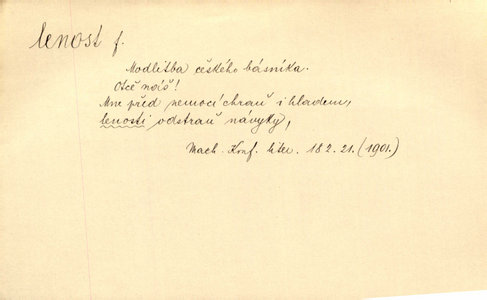 lenost f.
Modlitba českého básníka.
Otče náš!
Mne před nemocí chraň i hladem,
lenosti odstraň návyky,
Mach. Konf. liter. 182. 21. (1901.)